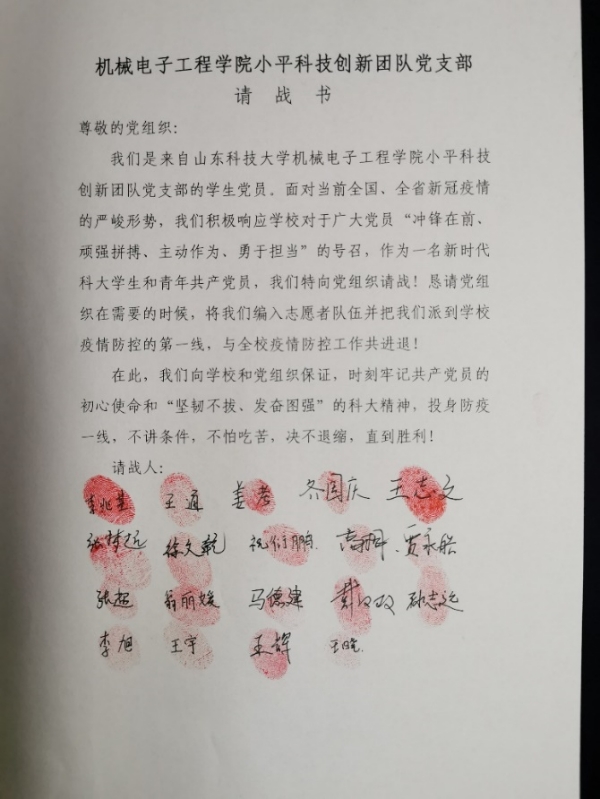 机械电子工程学院小平科技创新团队党支部
请 战 书
尊敬的党组织：
我们是来自山东科技大学机械电子工程学院小平科技
创新团队党支部的学生党员。面对当前全国、全省新冠疫情
的严峻形势，我们积极响应学校对于广大党员“冲锋在前、
顽强拼搏、主动作为、勇于担当”的号召，作为一名新时代
科大学生和青年共产党员，我们特向党组织请战！恳请党组
织在需要的时候，将我们编入志愿者队伍并把我们派到学校
疫情防控的第一线，与全校疫情防控工作共进退！
在此，我们向学校和党组织保证，时刻牢记共产党员的
初心使命和“坚韧不拔、发奋图强”的科大精神，投身防疫
一线，不讲条件，不怕吃苦，决不退缩，直到胜利！
请战人：
王通 姜考 王志文
张梦远 徐文乾 高鹏 贾永皓
张超 翁丽媛 马德建 孙志远
李旭 王宇 王辉 王晓